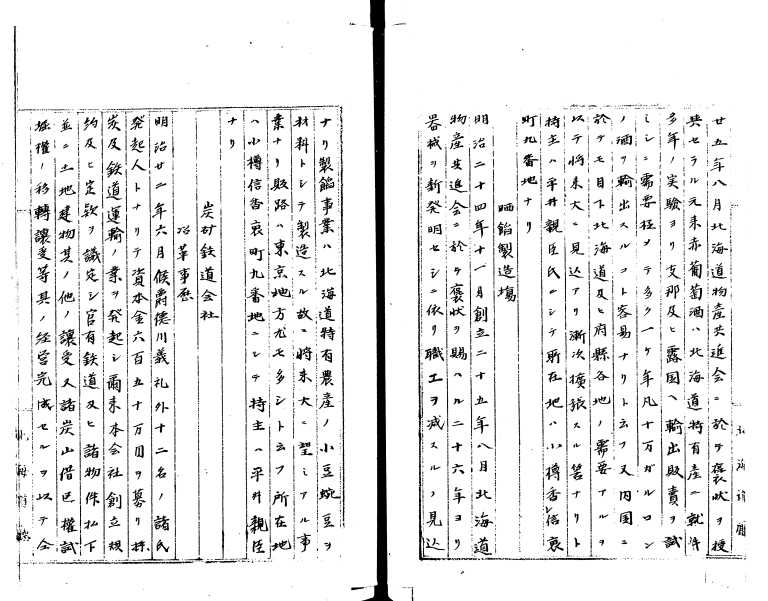 廿五年八月北海道物産共進会ニ於テ褒状ヲ授
与セラル元来赤葡萄酒ハ北海道特有産ニ就キ
多年ノ実験ヨリ支那及ヒ露国ヘ輸出販賣ヲ試
ミシニ需要極メテ多ク一ケ年凡十万ガルロン
ノ酒ヲ輸出スルコト容易ナリト云フ又内国ニ
於テモ目下北海道及ヒ府縣各地ノ需要アルヲ
以テ将来大ニ見込アリ漸次擴張スル筈ナリト
持主ハ平井親臣氏ニシテ所在地ハ小樽信香裏
町九番地ナリ
晒餡製造塲
明治二十四年十一月創立二十五年八月北海道
物産共進会ニ於テ褒状ヲ賜ハル二十六年ヨリ
器械ヲ新発明セシニ依リ職工ヲ減スルノ見込
ナリ製餡事業ハ北海道特有農産ノ小豆豌豆ヲ
材料トシテ製造スル故ニ将来大ニ望ミアル事
業ナリ販路ハ東京地方尤モ多シト云フ所在地
ハ小樽信香裏町九番地ニシテ持主ハ平井親臣
ナリ
炭砿鉄道会社
沿革事歴
明治廿二年六月侯爵徳川義礼外十二名ノ諸氏
発起人トナリテ資本金六百五十万円ヲ募リ採
炭及鉄道運輸ノ業ヲ発起シ爾来本会社創立規
約及ヒ定欵ヲ議定シ官有鉄道及ヒ諸物件払下
並ニ土地建物其ノ他ノ讓受又諸炭山借区權試
掘權ノ移轉讓受等具ノ経営完成セルヲ以テ仝
北海道廳